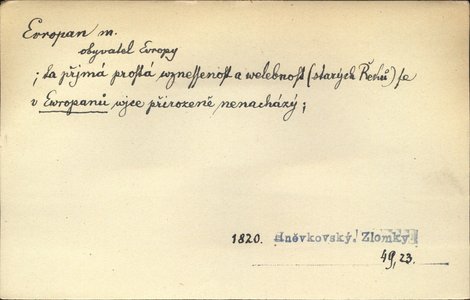 Evropan m.
obyvatel Evropy
; ta přjmá prostá wznessenost a welebnost (starých Řeků) se
v Ewropanů wjce přirozeně nenacházý;
1820. Hněvkovský, Zlomky
49, 23.